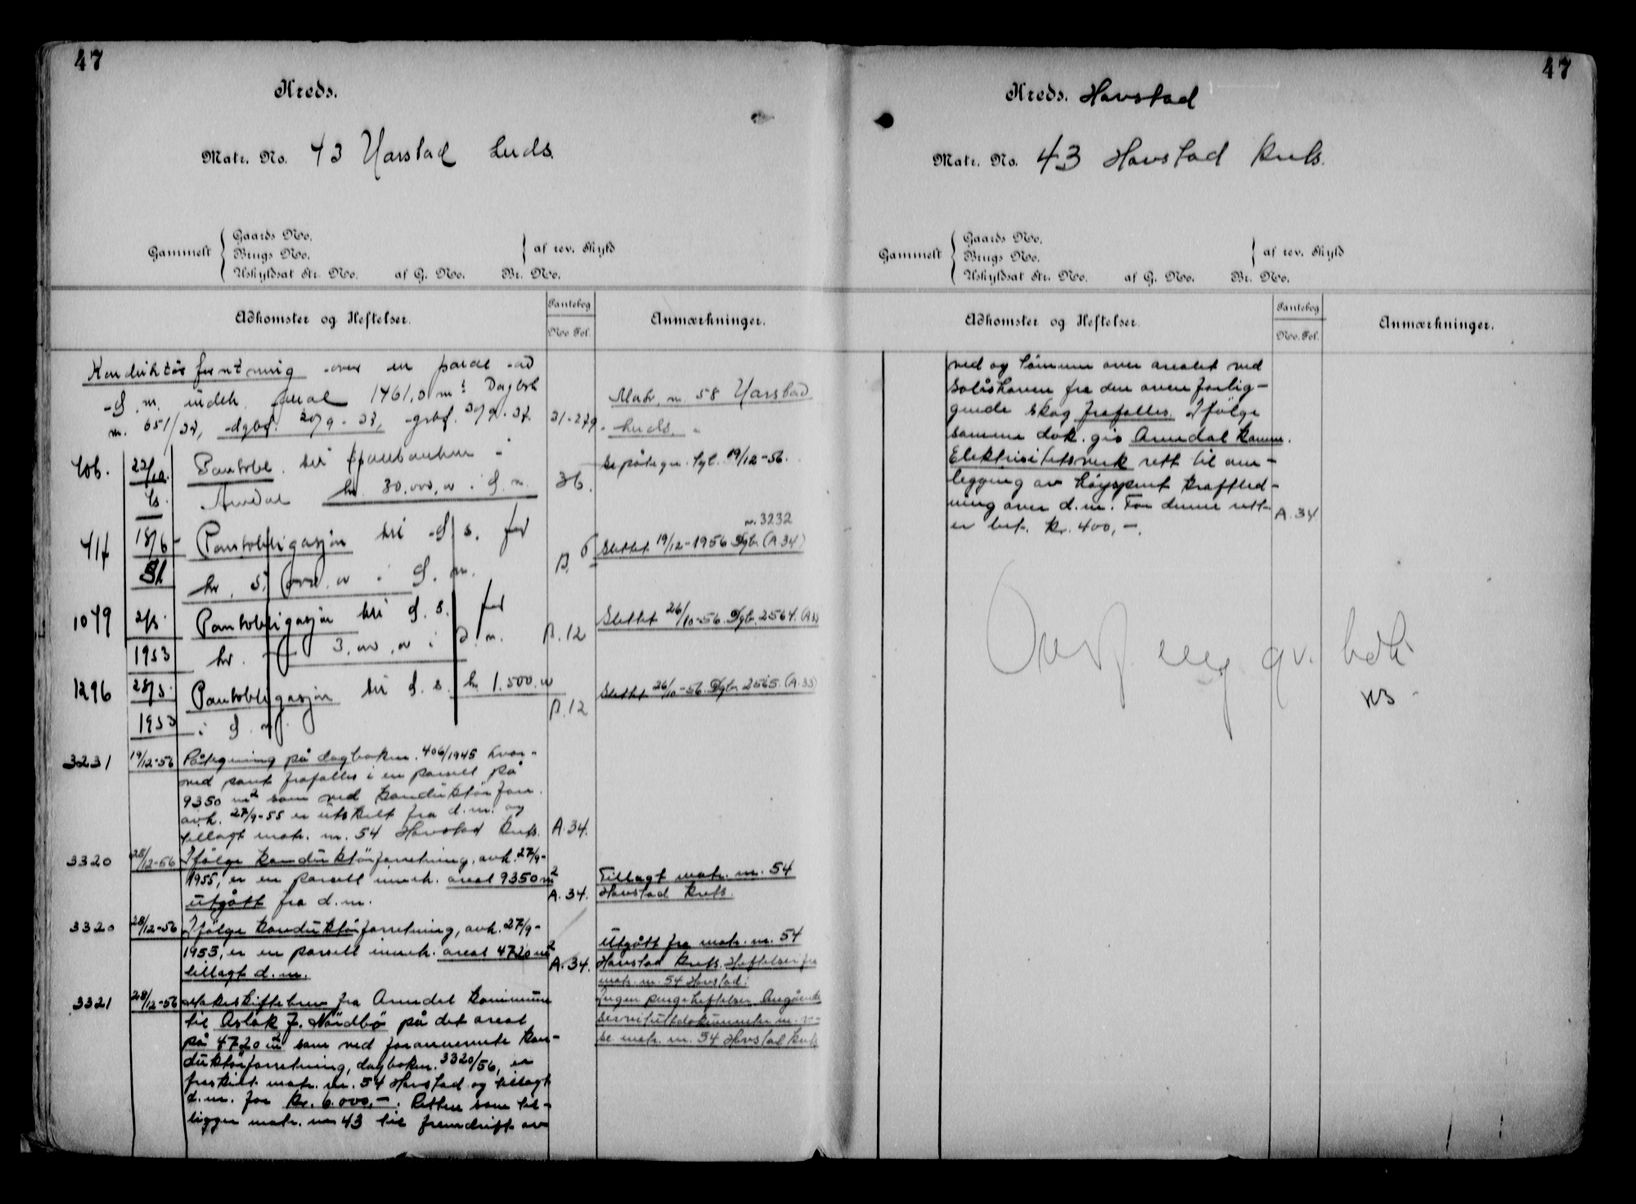 47
Kreds.
Matr. No. 43 Havstad
Gammelt
Gaards No.
Brugs No.
Uskyldsat Str. No. af G. No. Br. No.
af rev. Skyld
Adkomster og Heftelser.
Pantebog
No. Fol.
Anmærkninger.
over en
m. areal 1461,0 m²
m. 651/37,
31-279
Matr. n. 58 Havstad
606. 22/10 Pantobl. til
Arendal kr 30.000,00 i d. m.
36.
Se påtegn. 19/12-56.
417 18/6 Pantobligasjon til d. s. for
51 kr. i d. m.
B. 6
nr. 3232
Slettet 19/12-1956 Dgb. (A 34)
1079 2/5 Pantobligasjon til d. s. for
1953 kr. 3.000,00 i d. m.
B. 12
Slettet 26/10-56. Dgb. 2564. (A 33)
1296 28/5 Pantobligasjon til d. s. kr 1.500.00
1953 i d. m.
B. 12
Slettet 26/10-56. Dgb. 2565. (A. 33)
3231 19/12-56 Påtegning på dagboknr. 406/1945 hvor-
ved pant frafalles i en parsell på
9350 m² som ved konduktørforr.
avh. 27/9-55 er utskilt fra d. m. og
tillagt matr. nr. 54 Havstad kreds.
A. 34.
3320 28/12-56 Ifølge konduktørforretning, avh. 27/9-
1955, er en parsell inneh. areal 9350 m²
utgått fra d. m.
A. 34.
Tillagt matr. nr. 54
Havstad kreds.
3320 28/12-56 Ifølge konduktørforretning, avh. 27/9-
1953, er en parsell inneh. areal 4720 m²
tillagt d. m.
A. 34.
Utgått fra matr. nr. 54
Havstad kreds. Heftelser fra
matr. nr. 54 Havstad:
Ingen pengeheftelser. Angående
servituttdokumenter m. v.
se matr. nr. 54 Havstad kreds
3321 28/12-56 Makeskiftebrev fra Arendal kommune
til Aslak J. Nördbö på det areal
på 4720 m² som ved forannevnte kon-
duktørforretning, dagboknr. 3320/56, er
fraskilt matr. nr. 54 Havstad og tillagt
d. m. for kr. 6.000,-. Retten som til-
ligger matr. nr. 43 til fremdrift av
47
Kreds. Havstad
Matr. No. 43 Havstad kreds.
Gammelt
Gaards No.
Brugs No.
Uskyldsat Str. No. af G. No. Br. No.
af rev. Skyld
Adkomster og Heftelser.
Pantebog
No. Fol.
Anmærkninger.
ved og tømmer over arealet ved
Solåshaven fra den ovenforlig-
gende skog frafalles. Ifølge
samme dok. gis Arendal komm.
Elektrisitetsverk rett til om-
legging av høyspent kraftled-
ning over d. m. For denne rett
er bet. kr. 400,-.
A. 34